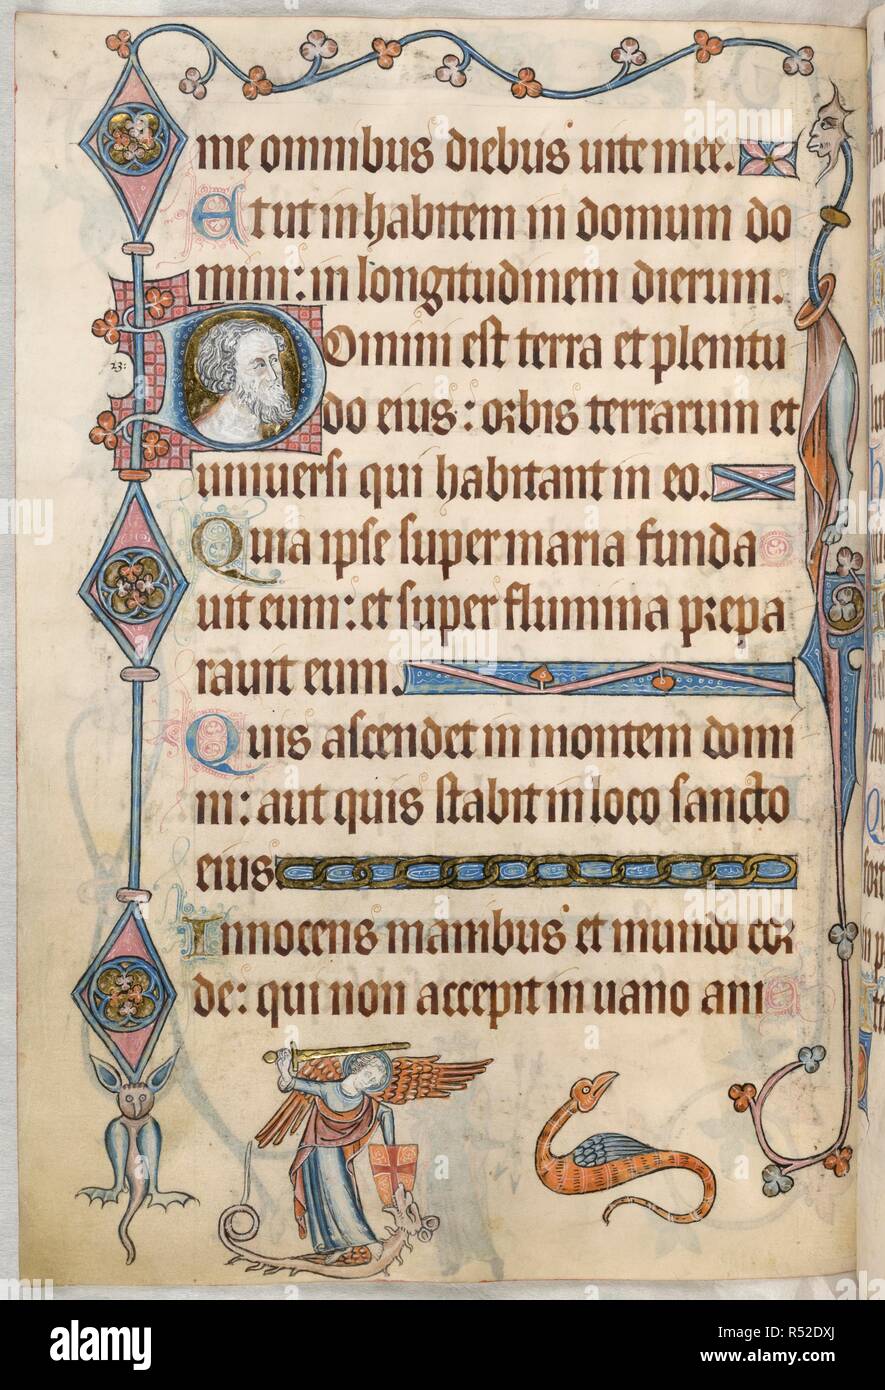 me omnibus diebus uite mee.
Et ut inhabitem in domum do
mini: in longitudinem dierum.
Domini est terra et plenitu
23:
do eius: orbis terrarum et
uniuersi qui habitant in eo.
Quia ipse super maria funda
uit eum: et super flumina prepa
rauit eum.
Quis ascendet in montem domi
ni: aut quis stabit in loco sancto
eius
Innocens manibus et mundo cor
de: qui non accepit in uano ani
a
alamy
alamy stock photo
Image ID: R52DXJ
www.alamy.com